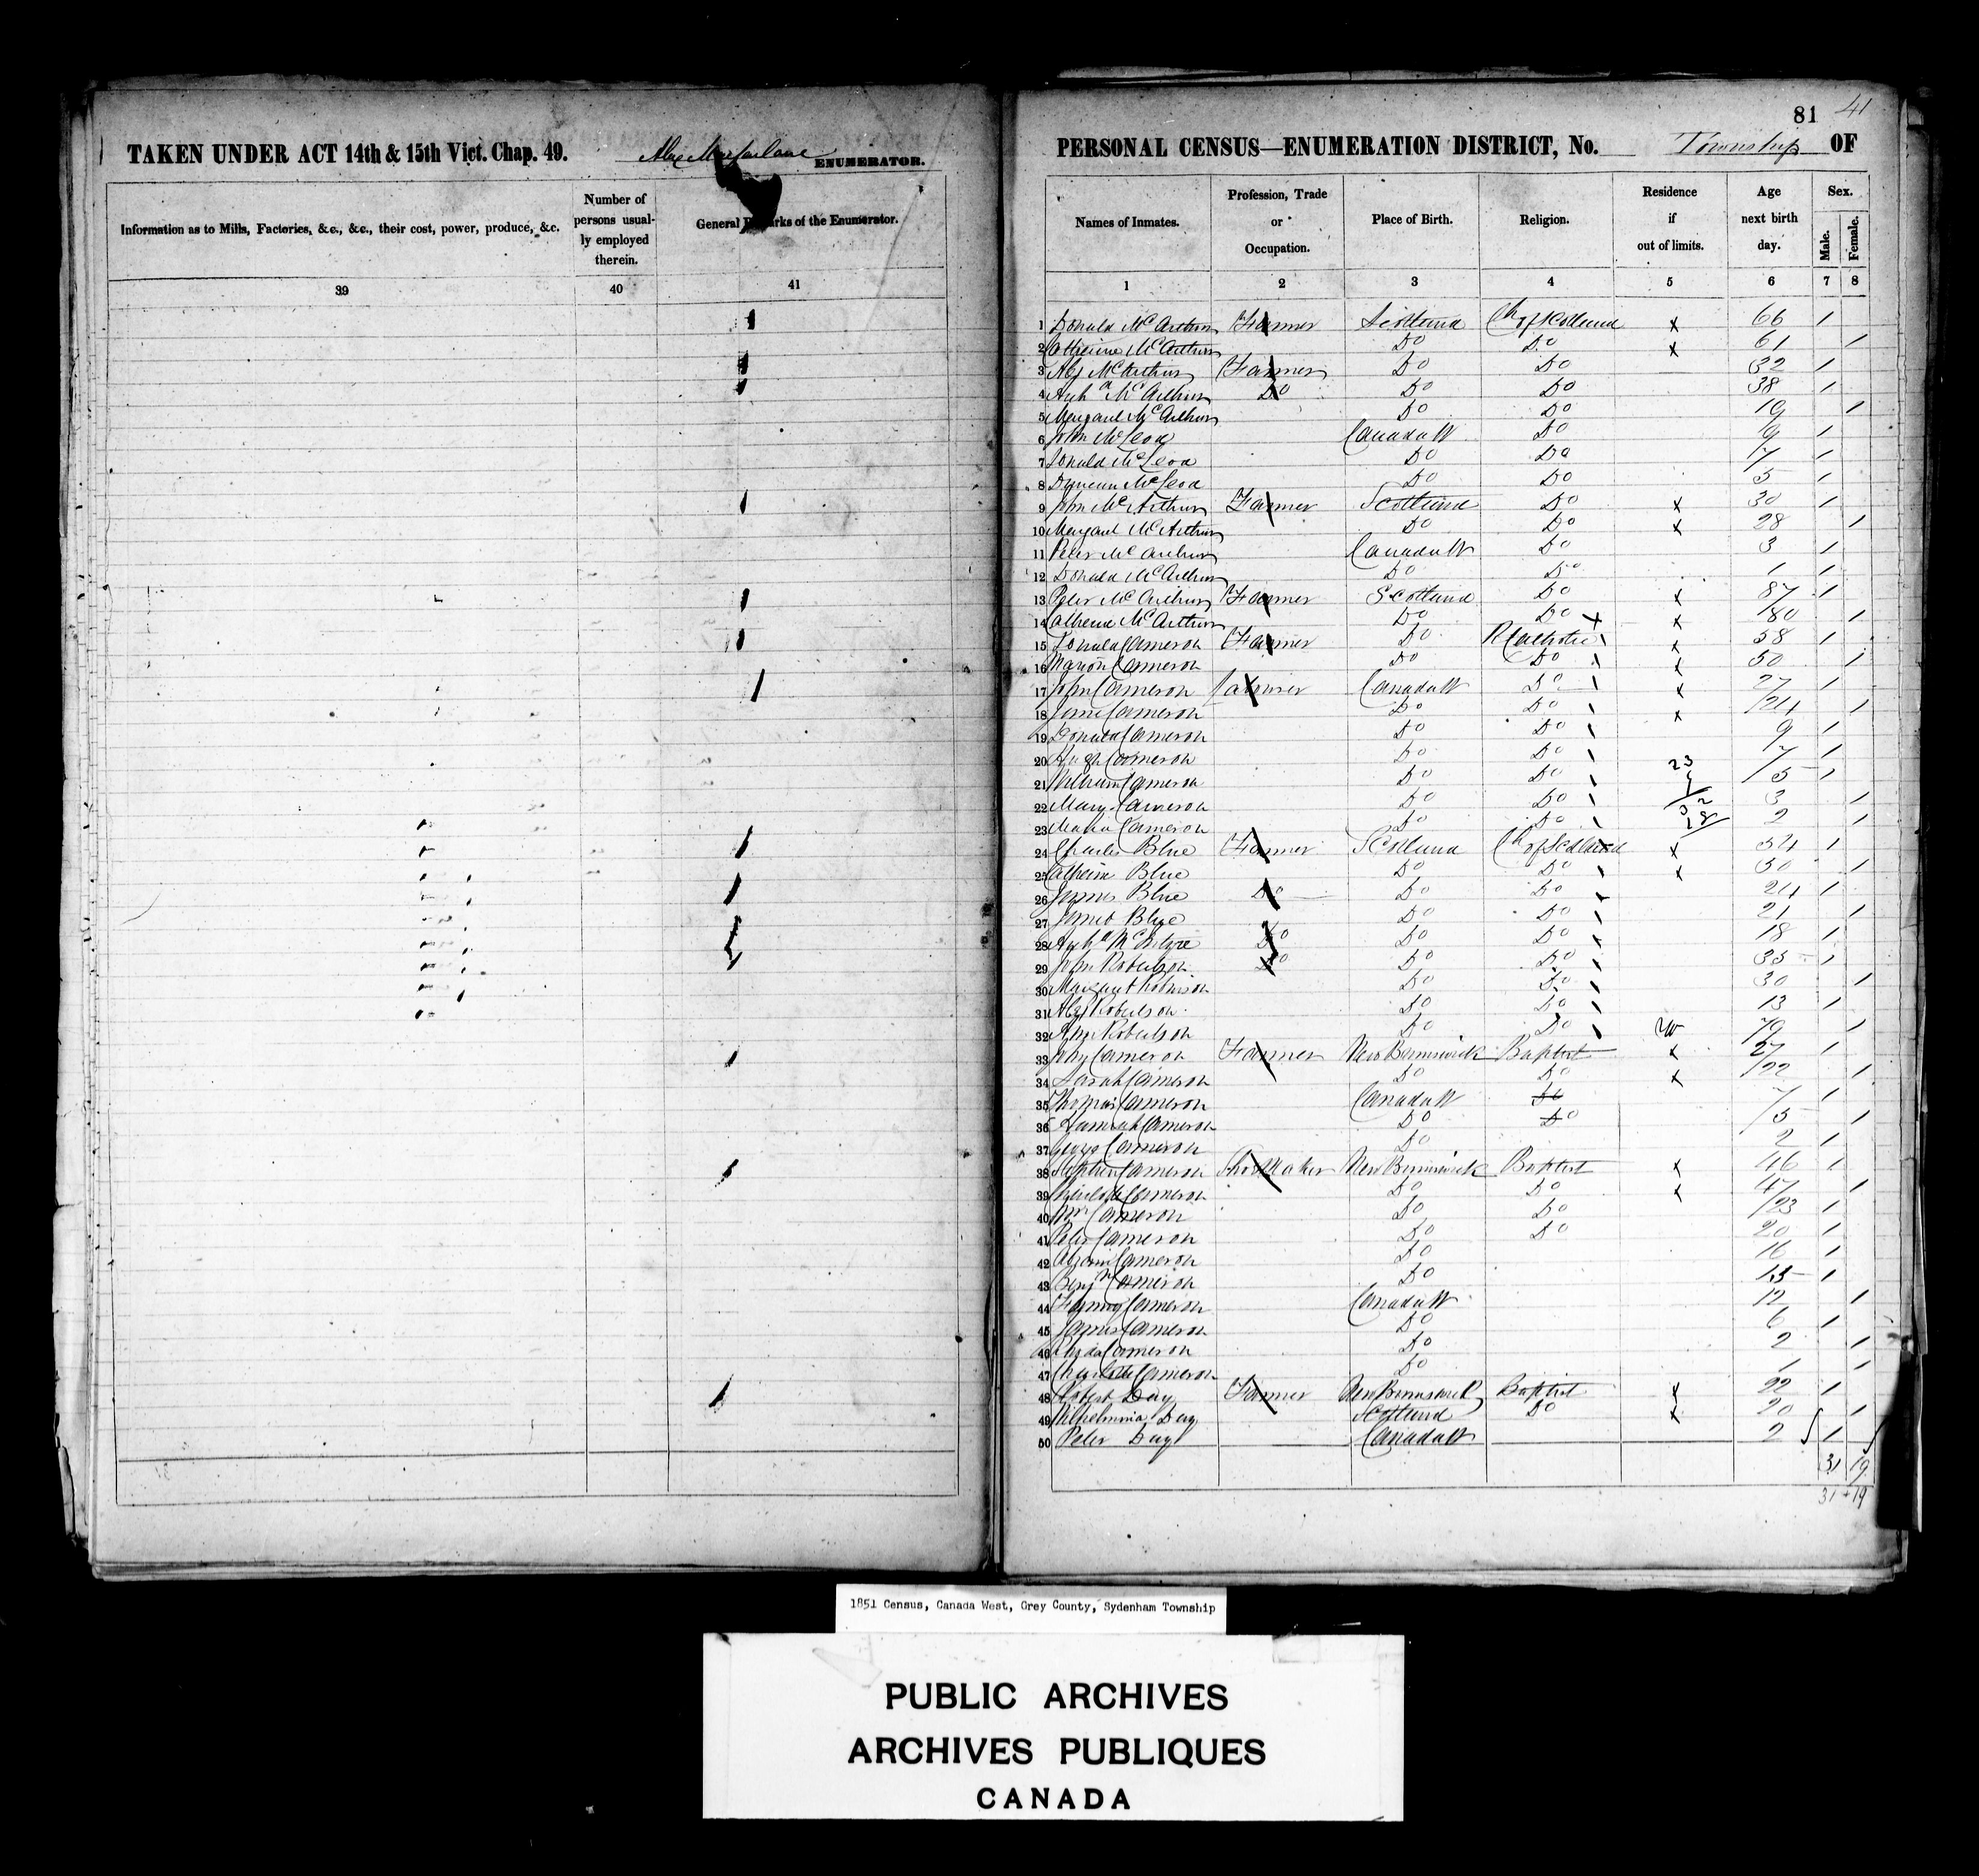 TAKEN UNDER ACT 14th & 15th Vict. Chap. 49. Alex Macfarlane ENUMERATOR.
Information as to Mills, Factories, &c., &c., their cost, power, produce, &c.
Number of persons usually employed therein.
General Remarks of the Enumerator.
39 40 41
81 41
PERSONAL CENSUS—ENUMERATION DISTRICT, No. Township OF
Names of Inmates. Profession, Trade or Occupation. Place of Birth. Religion. Residence if out of limits. Age next birth day. Sex. Male. Female.
1 2 3 4 5 6 7 8
1 Donald McArthur Farmer Scotland Ch of Scotland x 66 1
2 Catherine McArthur Do Do x 61 1
3 Alex McArthur Farmer Do Do 32 1
4 Archd McArthur Do Do Do 38 1
5 Margaret McArthur Do Do 19 1
6 John McLeod Canada W Do 9 1
7 Donald McLeod Do Do 7 1
8 Duncan McLeod Do Do 5 1
9 John McArthur Farmer Scotland Do x 30 1
10 Margaret McArthur Do Do x 28 1
11 Peter McArthur Canada W Do 3 1
12 Donald McArthur Do Do 1 1
13 Peter McArthur Farmer Scotland Do x 87 1
14 Catherine McArthur Do Do x x 80 1
15 Donald Cameron Farmer Do R Catholic x 58 1
16 Marion Cameron Do Do x 50 1
17 John Cameron Farmer Canada W Do x 27 1
18 Cameron Do Do x 24 1
19 Donald Cameron Do Do 9 1
20 Hugh Cameron Do Do 7 1
21 William Cameron Do Do 23 5 1
22 Mary Cameron Do Do 3 1
23 Cameron Do Do 2 1
24 Charles Blue Farmer Scotland Ch of Scotland x 34 1
25 Catherine Blue Do Do x 30 1
26 James Blue Do Do Do 24 1
27 Janet Blue Do Do 21 1
28 Archd McIntyre Do Do Do 18 1
29 John Robertson Do Do Do 35 1
30 Margaret Robinson Do Do 30 1
31 Alex Robertson Do Do 13 1
32 Ann Robertson Do Do 79 1
33 John Cameron Farmer New Brunswick Baptist x 27 1
34 Sarah Cameron Do Do x 22 1
35 Thomas Cameron Canada W Do 7 1
36 Hannah Cameron Do Do 5 1
37 George Cameron Do 2 1
38 Stephen Cameron Shoe Maker New Brunswick Baptist x 46 1
39 Charlotte Cameron Do Do x 47 1
40 Wm Cameron Do Do 23 1
41 Peter Cameron Do Do 20 1
42 Cameron Do 16 1
43 Benjn Cameron Do 15 1
44 Fanny Cameron Canada W 12 1
45 James Cameron Do 6 1
46 Cameron Do 2 1
47 Charlotte Cameron Do 1 1
48 Robert Day Farmer New Brunswick Baptist x 22 1
49 Wilhelmina Day Scotland Do x 20 1
50 Peter Day Canada W 2 1
31 19
31 + 19
1851 Census, Canada West, Grey County, Sydenham Township
PUBLIC ARCHIVES
ARCHIVES PUBLIQUES
CANADA